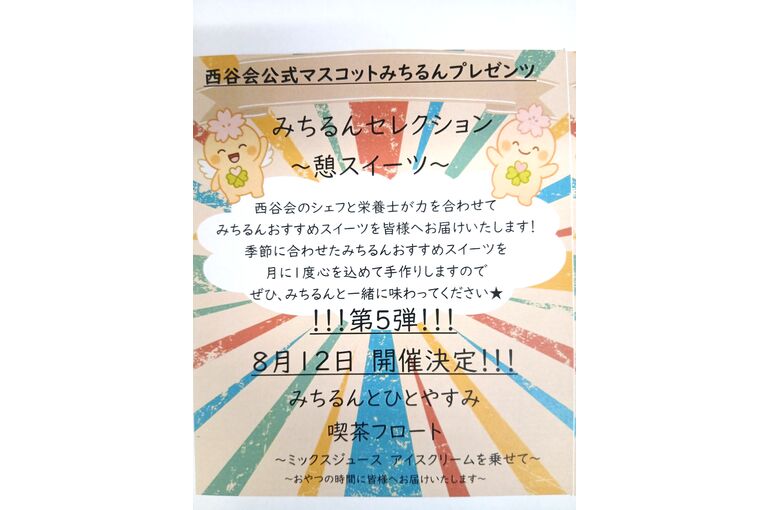 西谷会公式マスコットみちるんプレゼンツ
みちるんセレクション
～憩スイーツ～
西谷会のシェフと栄養士が力を合わせて
みちるんおすすめスイーツを皆様へお届けいたします！
季節に合わせたみちるんおすすめスイーツを
月に1度心を込めて手作りしますので
ぜひ、みちるんと一緒に味わってください★
！！！第5弾！！！
8月12日 開催決定！！！
みちるんとひとやすみ
喫茶フロート
～ミックスジュース アイスクリームを乗せて～
～おやつの時間に皆様へお届けいたします～